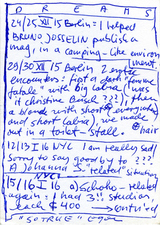 DREAMS
24/25 XII 15 Berlin = I helped
BRUNO JOSSELIN publish a
mag, in a camping-like environ
ment
29/30 XII 15 Berlin 2 sister
encounters: first a dark femme
fatale with big labia (was
it Christine ???), then
a blonde with short everything
and short labia, we made
out in a toilet-stall. hair
12/13 I 16 NYC I am really sad
sorry to say good by to ???
A Johanna S. related situation
NYC
15/16 I 16 a Scholo-related
again: I had 3!!! studios,
each $400
"SO TRUE"